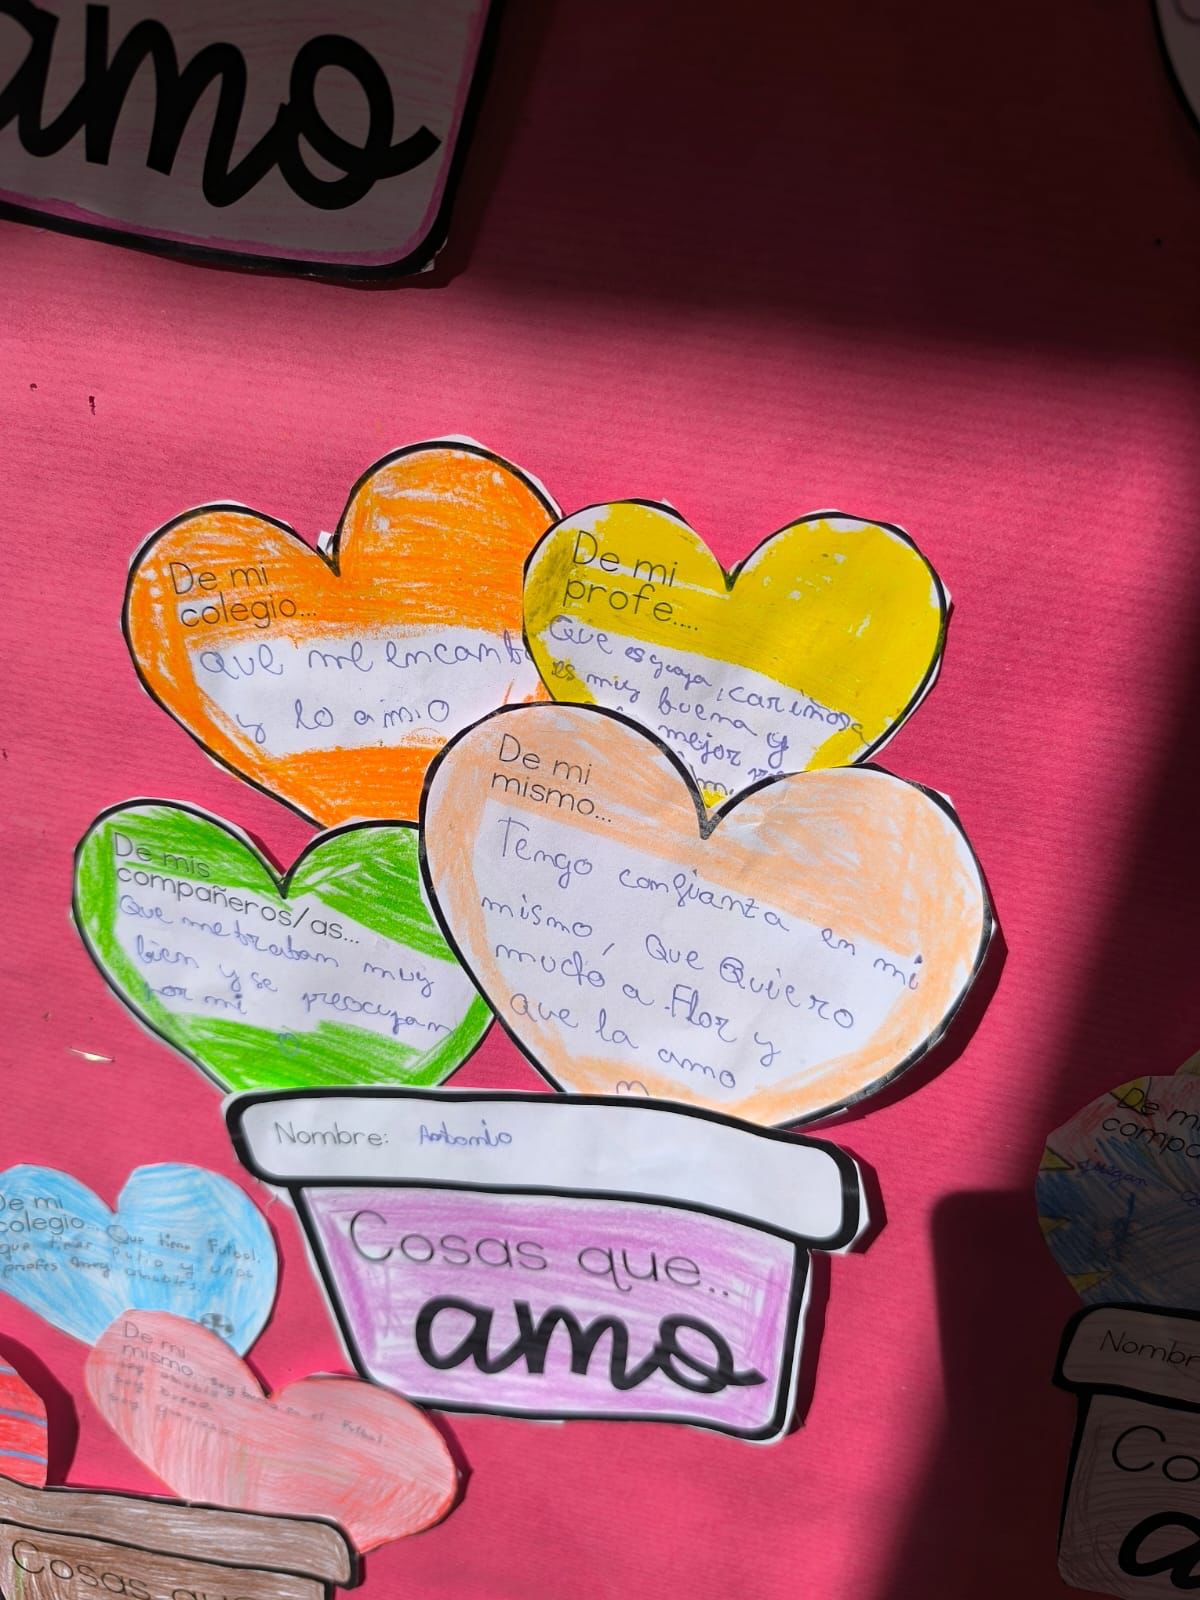 amo
De mi
colegio...
que me encant
y lo amo
De mi
profe....
Que es guapa, cariñosa
es muy buena y
mejor
De mi
mismo...
Tengo confianza en mi
mismo, Que Quiero
mucho a Flor y
que la amo
De mis
compañeros/as...
Que me tratan muy
bien y se preocupan
por mi
Nombre: Antonio
Cosas que...
amo
De mi
colegio... Que tiene Futbol.
que tiene patio y unos
profes muy amables.
De mi
mismo... soy bueno en el Futbol.
soy
soy
soy
Cosas que
De m
compa
juegan
Nombr
Co
a